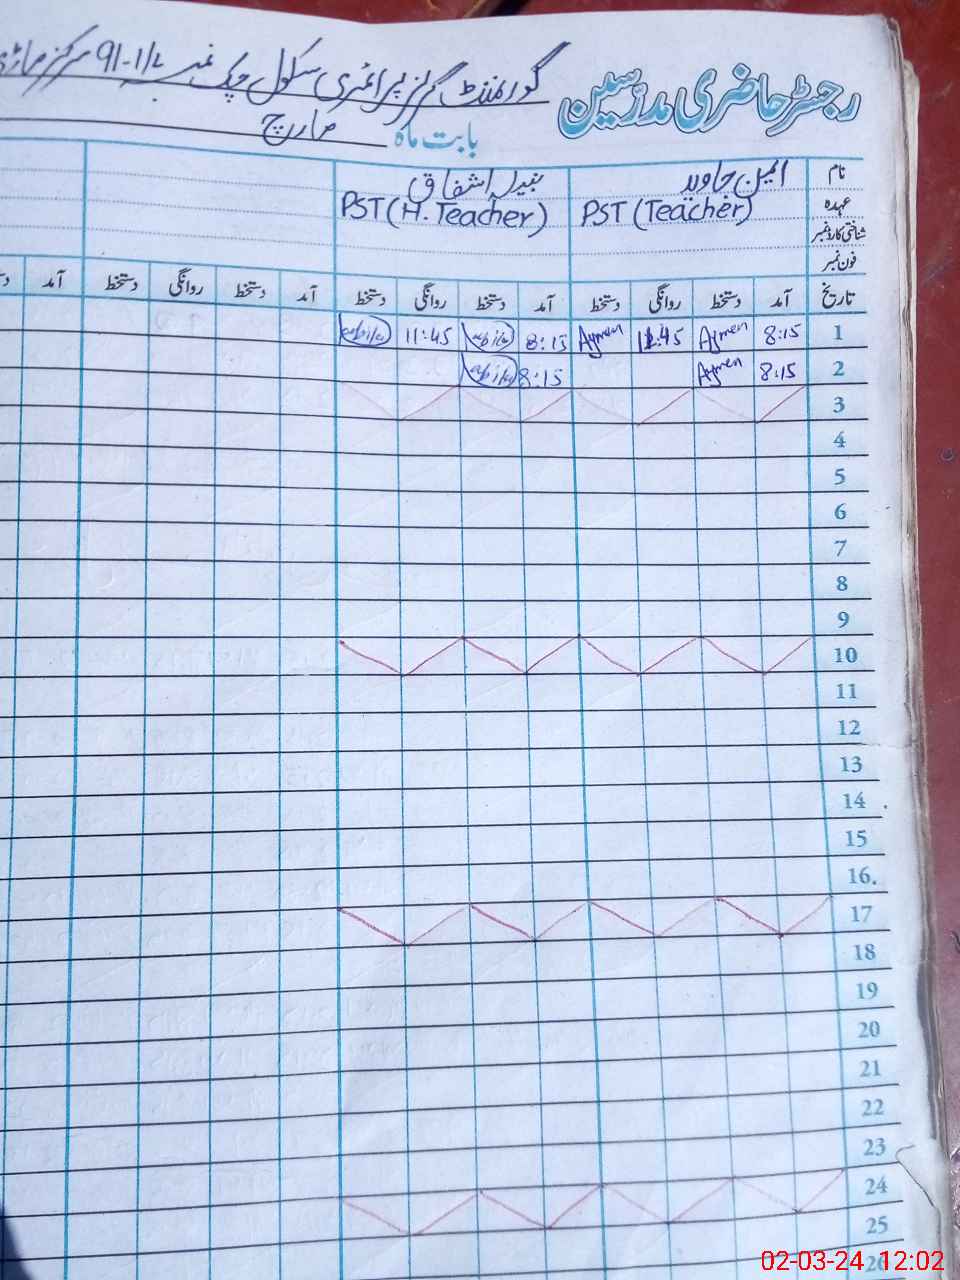 رجسٹر حاضری مدرسین
گورنمنٹ گرلز پرائمری سکول چک نمبر 91-1/L مرکز
بابت ماہ مارچ
نام ایمن جاوید نبیلہ اشفاق
عہدہ PST (Teacher) PST (H. Teacher)
شناختی کارڈ نمبر
فون نمبر
تاریخ آمد دستخط روانگی دستخط آمد دستخط روانگی دستخط آمد دستخط روانگی دستخط آمد
1 8:15 Aymen 11:45 Aymen 8:15 11:45
2 8:15 Aymen 8:15
3
4
5
6
7
8
9
10
11
12
13
14
15
16
17
18
19
20
21
22
23
24
25
26
02-03-24 12:02